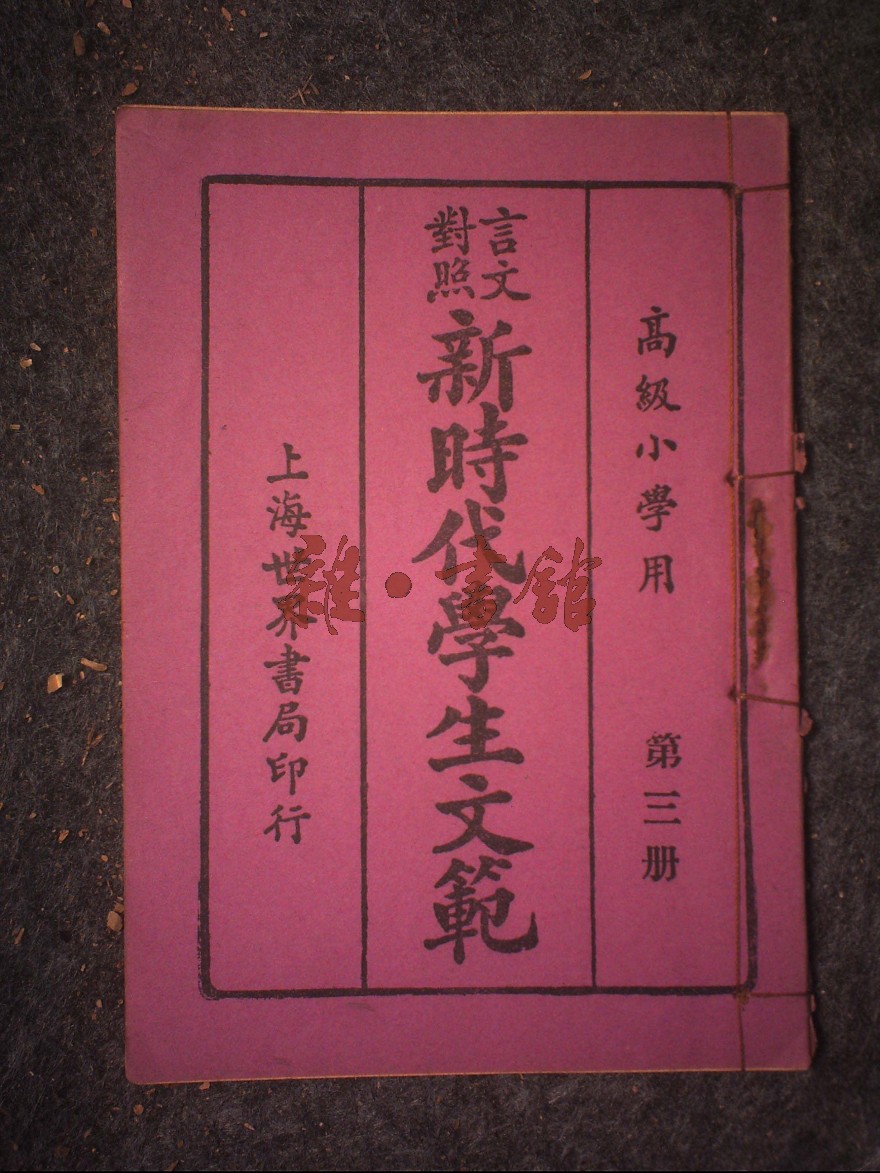 高級小學用 第三册
言文
對照
新時代學生文範
上海世界書局印行
雜·書館